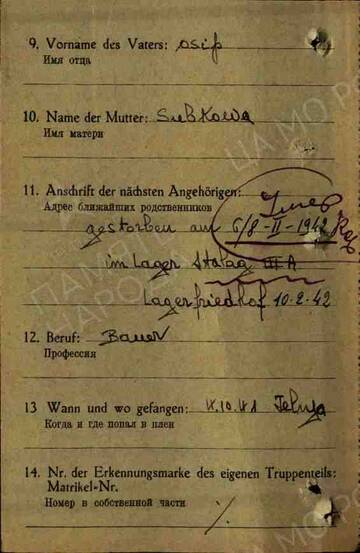 9. Vorname des Vaters: osip
Имя отца
10. Name der Mutter: Subkowa
Имя матери
11. Anschrift der nächsten Angehörigen:
Адрес ближайших родственников
Умер
gestorben am 6/8-II-1942
im Lager Stalag III A
Lagerfriedhof 10-2-42
12. Beruf: Bauer
Профессия
13 Wann und wo gefangen:
Когда и где попал в плен
14. Nr. der Erkennungsmarke des eigenen Truppenteils:
Matrikel-Nr.
Номер в собственной части